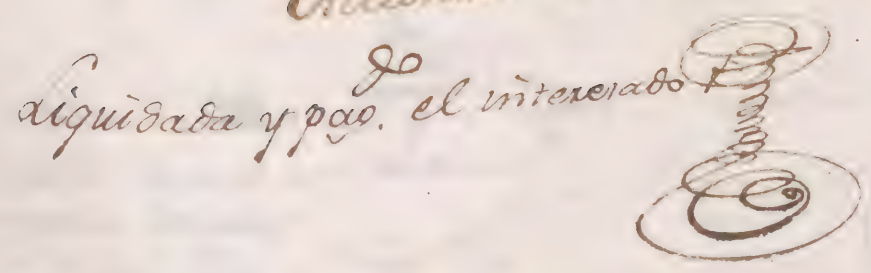 Liquidada y pag.do el interesado